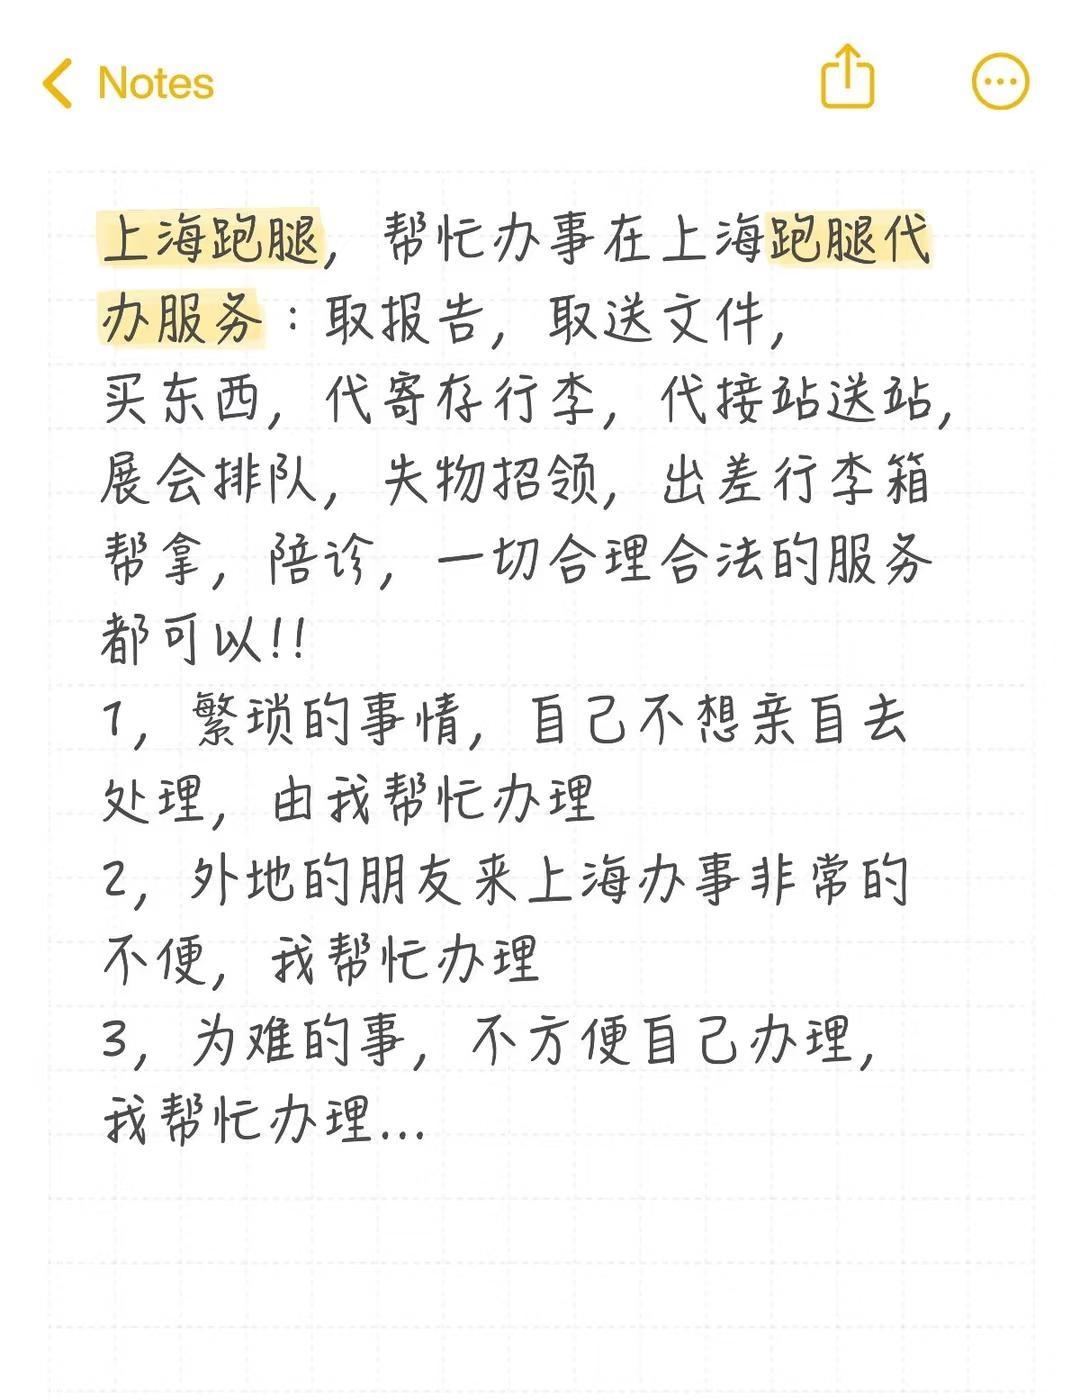 Notes
上海跑腿，帮忙办事在上海跑腿代
办服务：取报告，取送文件，
买东西，代寄存行李，代接站送站，
展会排队，失物招领，出差行李箱
帮拿，陪诊，一切合理合法的服务
都可以!!
1，繁琐的事情，自己不想亲自去
处理，由我帮忙办理
2，外地的朋友来上海办事非常的
不便，我帮忙办理
3，为难的事，不方便自己办理，
我帮忙办理...